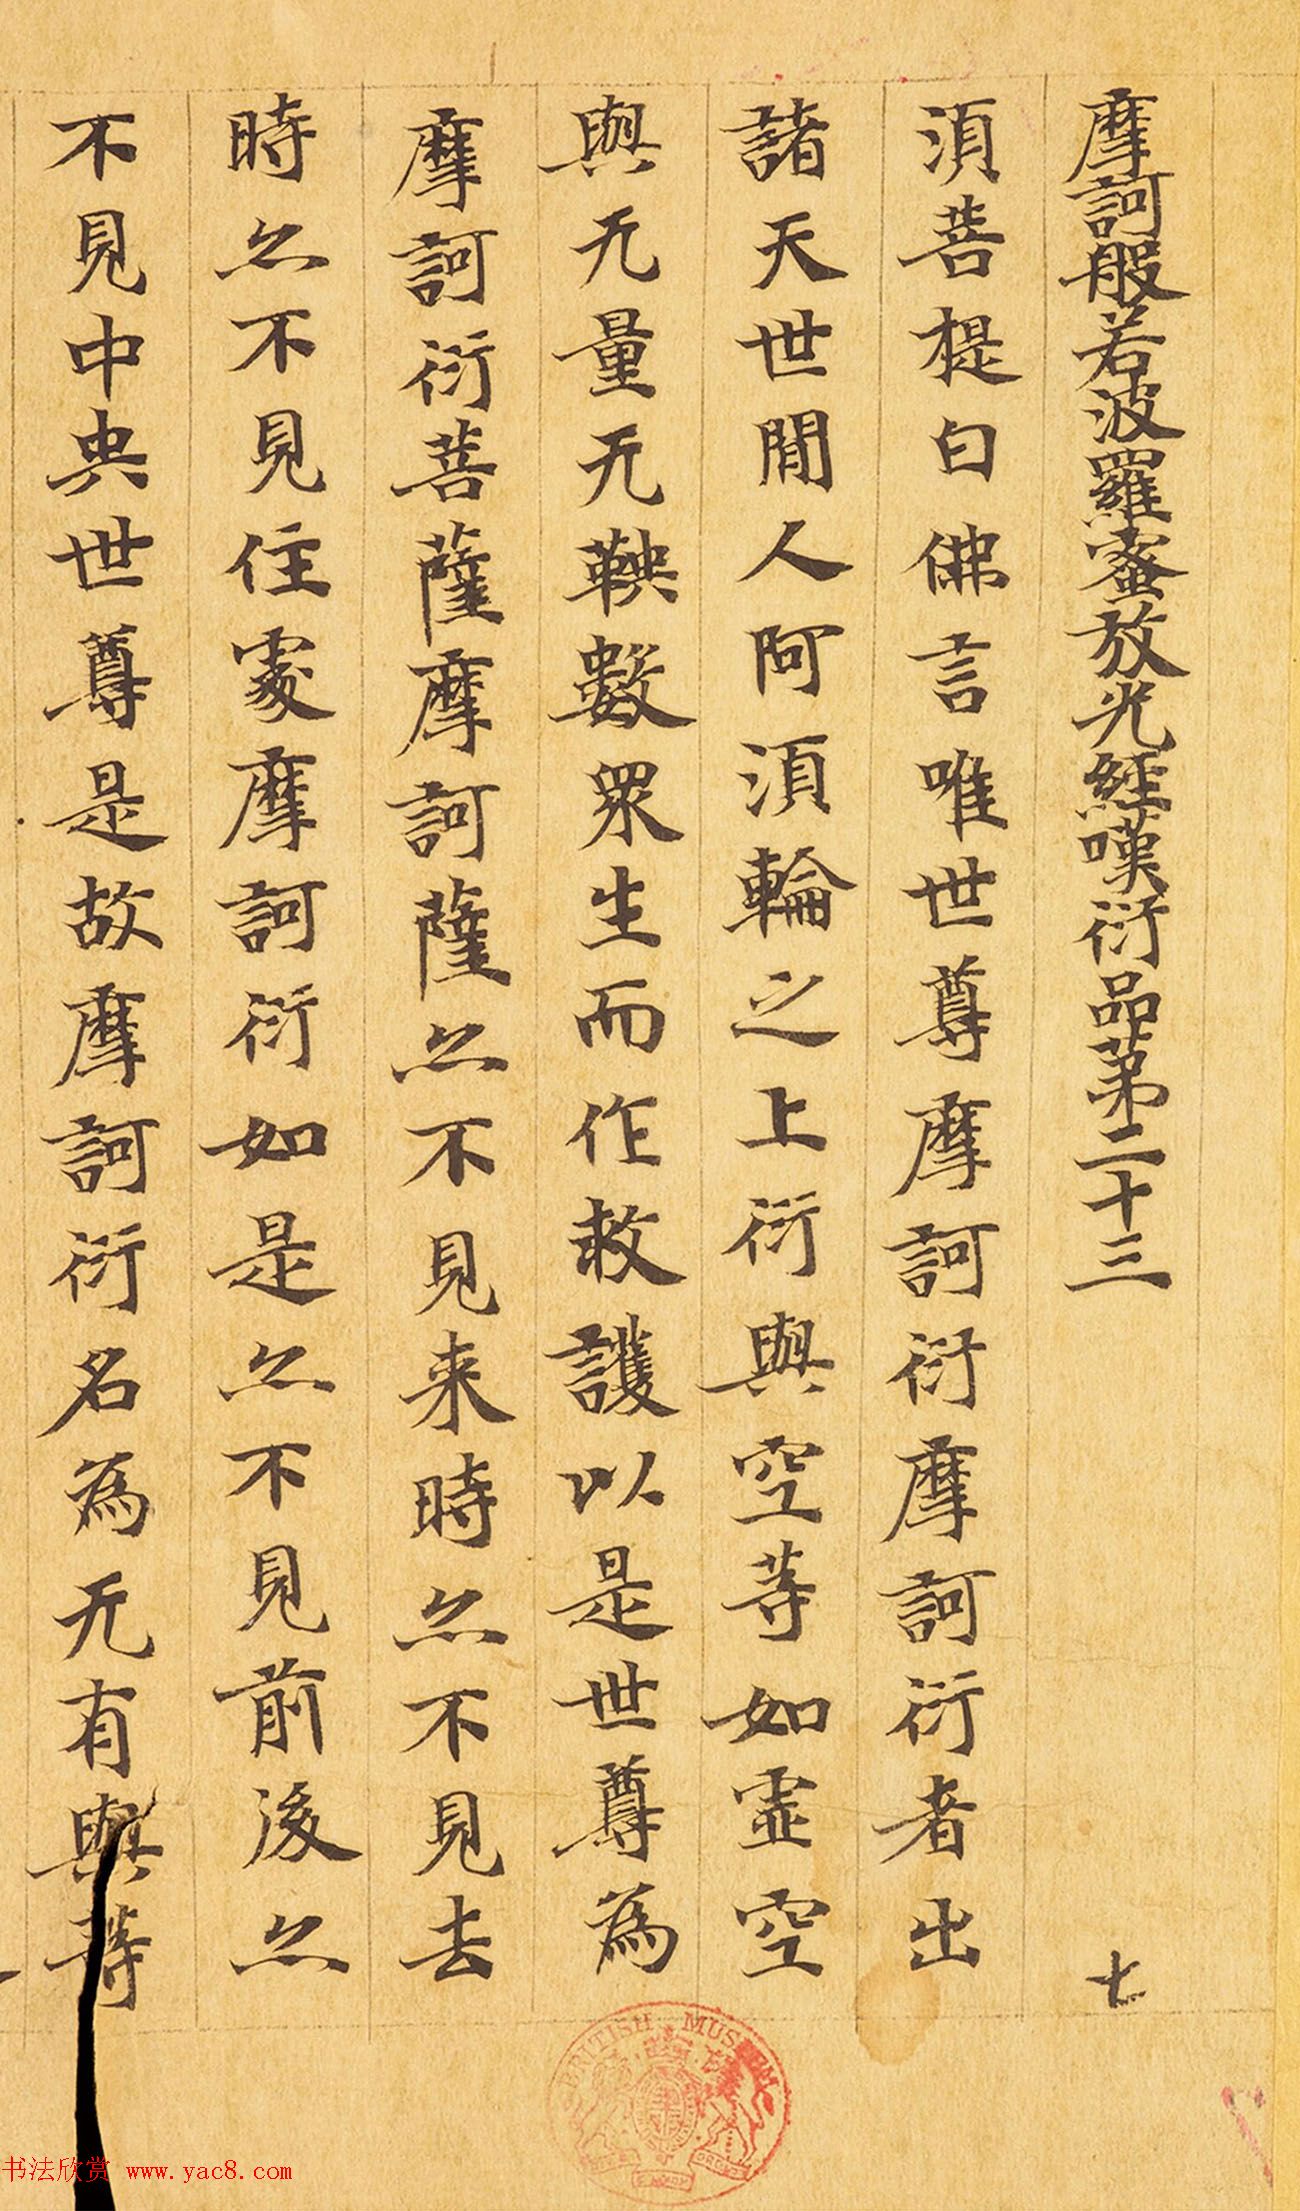 摩訶般若波羅蜜放光經嘆衍品苐二十三
七
須菩提白佛言唯世尊摩訶衍摩訶衍者出
諸天世閒人阿須輪之上衍與空等如虛空
與无量无鞅數眾生而作救護以是世尊為
摩訶衍菩薩摩訶薩亦不見来時亦不見去
時亦不見住處摩訶衍如是亦不見前後亦
不見中央世尊是故摩訶衍名為无有與等
BRITISH MUSEUM
书法欣赏 www.yac8.com